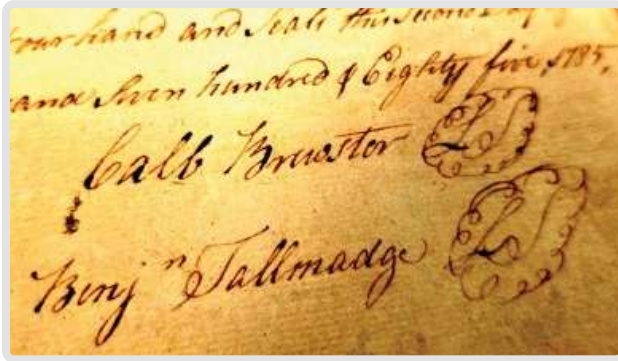 our hand and Seals this Second day of
and Seven hundred & Eighty five, 1785,
Calb Brewster LS
Benj n Tallmadge LS